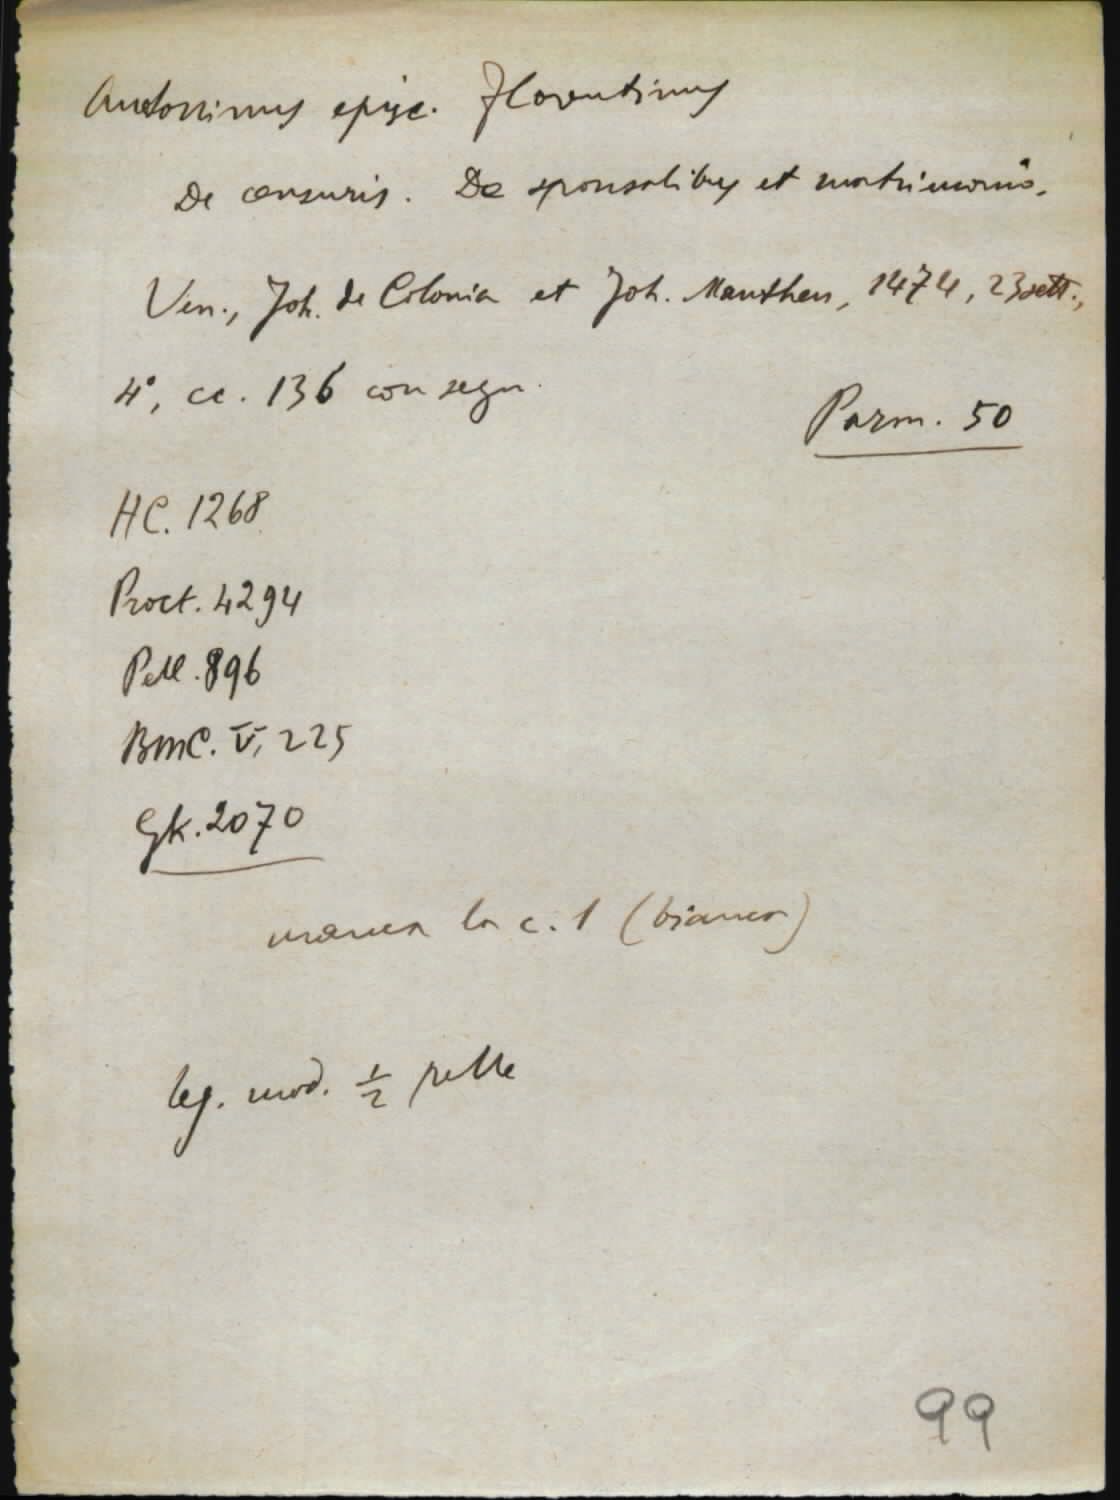 Antoninus episc. Florentinus
De censuris. De sponsalibus et matrimonio.
Ven., Joh. de Colonia et Joh. Manthen, 1474, 23 sett.,
4°, cc. 136 con segn.
Parm. 50
HC. 1268
Proct. 4294
Pell. 896
BMC. V, 225
Gk. 2070
manca la c. 1 (bianca)
leg. mod. ½ pelle
99